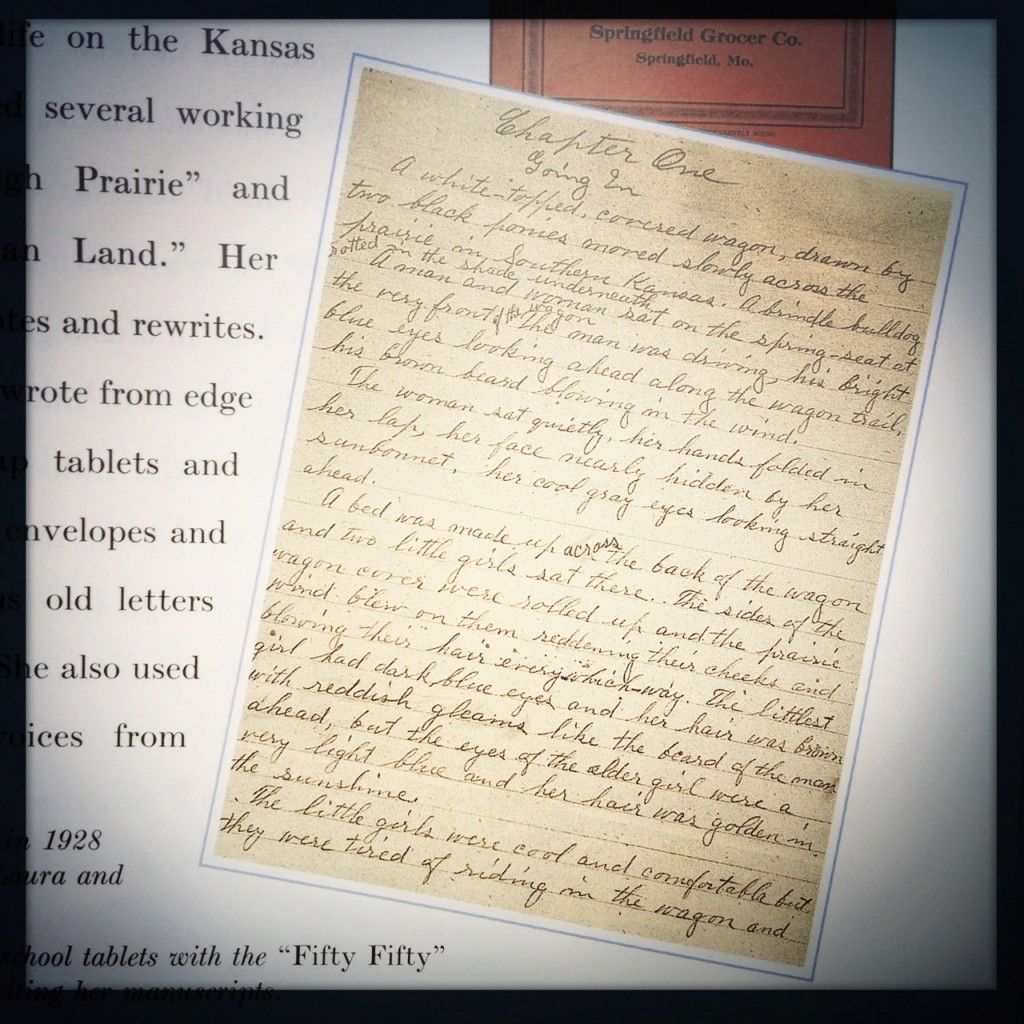 life on the Kansas
several working
Prairie" and
Land." Her
and rewrites.
wrote from edge
tablets and
envelopes and
old letters
She also used
voices from
in 1928
Laura and
school tablets with the "Fifty Fifty"
writing her manuscripts.
Springfield Grocer Co.
Springfield, Mo.
Chapter One
Going In
A white-topped, covered wagon, drawn by
two black ponies moved slowly across the
prairie in Southern Kansas. A brindle bulldog
trotted in the shade underneath
A man and woman sat on the spring-seat at
the very front of the wagon The man was driving, his bright
blue eyes looking ahead along the wagon trail,
his brown beard blowing in the wind.
The woman sat quietly, her hands folded in
her lap, her face nearly hidden by her
sunbonnet, her cool gray eyes looking straight
ahead.
A bed was made up across the back of the wagon
and two little girls sat there. The sides of the
wagon cover were rolled up and the prairie
wind blew on them reddening their cheeks and
blowing their hair every-which-way. The littlest
girl had dark blue eyes and her hair was brown
with reddish gleams like the beard of the man
ahead, but the eyes of the older girl were a
very light blue and her hair was golden in
the sunshine.
The little girls were cool and comfortable but
they were tired of riding in the wagon and